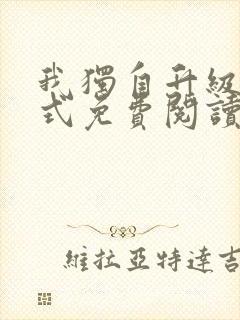 我獨自升級
式免費閱讀
維拉亞特達吉